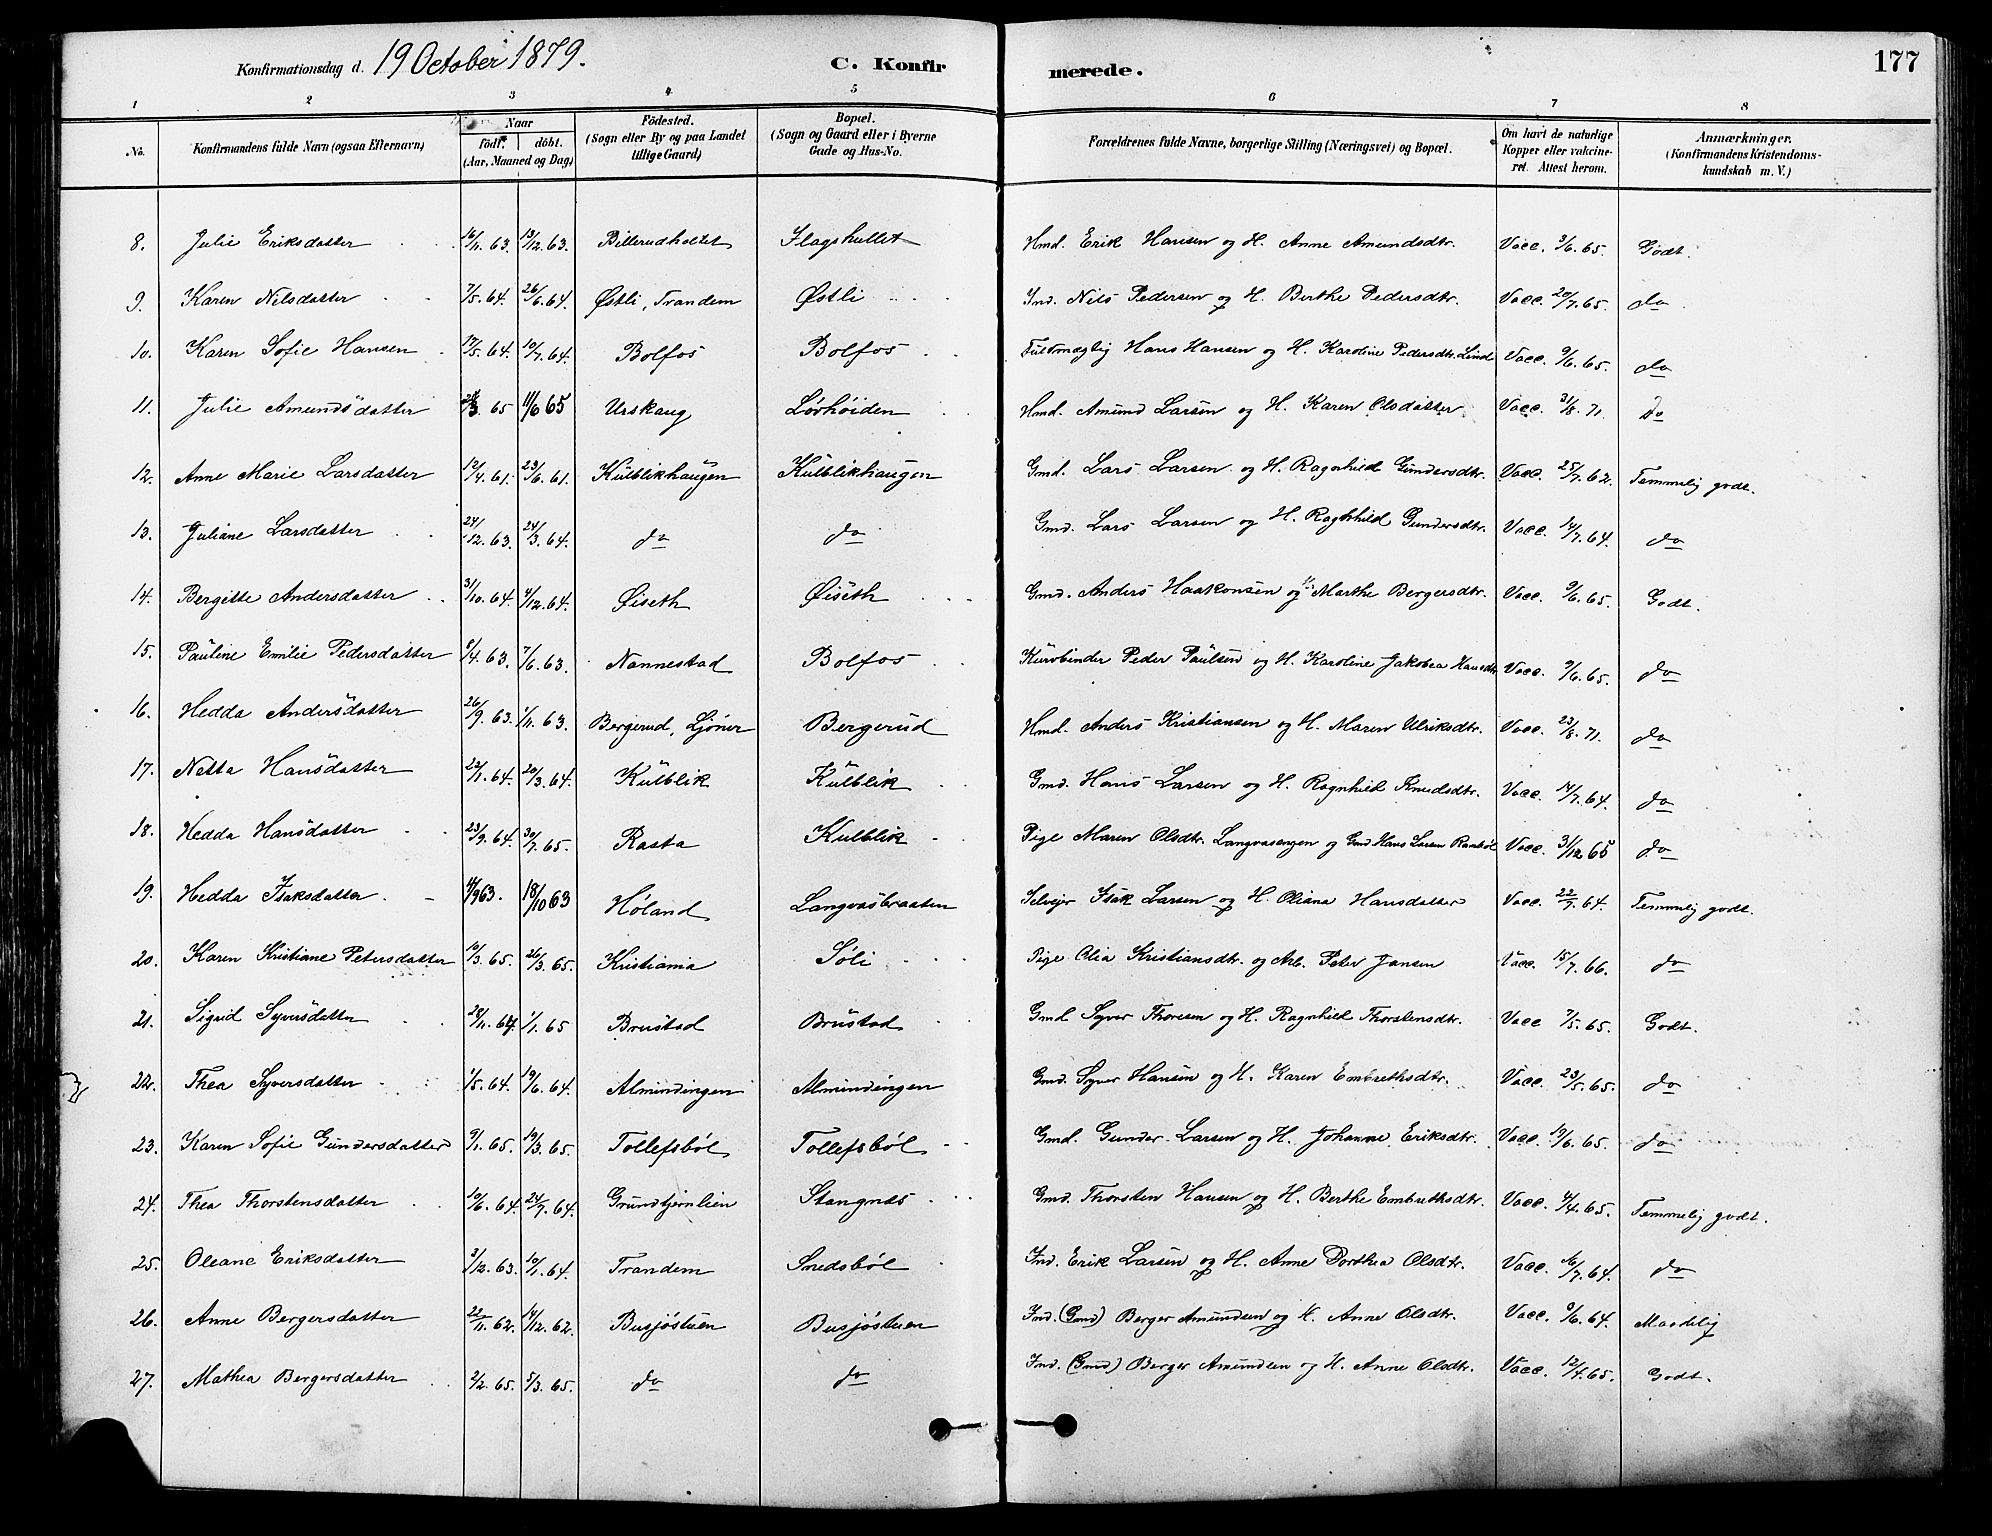 Konfirmationsdag d. 19 October 1879. C. Konfirmerede. 177
1 2 3 4 5 6 7 8
No. Konfirmandens fulde Navn (ogsaa Efternavn) Naar födt. döbt. (Aar, Maaned og Dag) Födested. (Sogn eller By og paa Landet tillige Gaard) Bopæl. (Sogn og Gaard eller i Byerne Gade og Hus-No. Forældrenes fulde Navne, borgerlige Stilling (Næringsvei) og Bopæl. Om havt de naturlige Kopper eller vakcineret. Attest herom. Anmærkninger. (Konfirmandens Kristendomskundskab m. V.)
8. Julie Eriksdatter 16/11 63. 13/12 63. Billerudholtet Flagshullet Hmd. Erik Hansen og H. Anne Amundsdtr. Vacc. 3/6. 65. Godt.
9. Karen Nilsdatter 7/5 64. 26/6 64. Østli, Trandem Østli Ind. Nils Pedersen og H. Berthe Pedersdtr. Vacc. 20/7. 65. do
10. Karen Sofie Hansen 17/5. 64. 10/7. 64. Bolfos Bolfos Fuldmægtig Hans Hansen og H. Karoline Pedersdtr. Lind Vacc. 9/6. 65. do
11. Julie Amundsdatter 65 11/6 65 Urskaug Lørhøiden Hmd. Amund Larsen og H. Karen Olsdatter Vacc. 31/8. 71. Do
12. Anne Marie Larsdatter 12/4. 61. 23/6. 61. Kulblikhaugen Kulblikhaugen Gmd. Lars Larsen og H. Ragnhild Gundersdtr. Vacc. 25/7. 62. Temmelig godt.
13. Juliane Larsdatter 24/12. 63. 24/3. 64. do do Gmd. Lars Larsen og H. Ragnhild Gundersdtr. Vacc. 14/7. 64. do
14. Bergitte Andersdatter 31/10. 64. 4/12. 64. Øiseth Øiseth Gmd. Anders Haakonsen og H. Marthe Bergersdtr. Vacc. 9/6. 65. Godt.
15. Pauline Emilie Pedersdatter 8/4. 63. 7/6. 63. Nannestad Bolfos Kurvbinder Peder Paulsen og H. Karoline Jakobea Hansdtr Vacc. 9/6. 65. do
16. Hedda Andersdatter 26/9. 63. 1/11. 63. Bergerud, Ljöner Bergerud Hmd. Anders Kristiansen og H. Maren Ulriksdtr. Vacc. 23/8. 71. do
17. Netta Hansdatter 22/1. 64. 20/3. 64. Kulblik Kulblik Gmd. Hans Larsen og H. Ragnhild Knudsdtr. Vacc. 14/7. 64. do
18. Hedda Hansdatter 23/9. 64. 30/7. 65. Rasta Kulblik Pige Maren Olsdtr. Langvasengen og Gmd Hans Larsen Vacc. 31/12 65 do
19. Hedda Isaksdatter 63. 18/10 63 Høland Langvasbraaten Selvejer Isak Larsen og H. Oliana Hansdatter Vacc. 22/7. 64. Temmelig godt.
20. Karen Kristiane Petersdatter 10/3. 65. 26/3. 65. Kristiania Søli Pige Olia Kristiansdtr. og Arb. Peter Jansen Vacc. 15/7. 66. do
21. Sigrid Syversdatter 28/11. 64 1/1. 65 Brustad Brustad Gmd Syver Thoresen og H. Ragnhild Thorstensdtr. Vacc 7/5. 65. Godt.
22. Thea Syversdatter 1/5. 64. 19/6. 64 Almindingen Almindingen Gmd. Syver Hansen og H. Karen Embrethsdtr. Vacc. 23/5. 65. do
23. Karen Sofie Gundersdatter 9/1. 65. 19/3. 65. Tollefsbøl Tollefsbøl Gmd. Gunder Larsen og H. Johanne Eriksdtr. Vacc. 19/6. 65. do
24. Thea Thorstensdatter 10/6. 64. 24/7. 64. Grundtjernlien Stangnes Gmd. Thorsten Hansen og H. Berthe Embrethsdtr. Vacc. 4/4. 65. Temmelig godt.
25. Oleane Eriksdatter 3/12. 63. 10/1. 64. Trandem Smedsbøl Ind. Erik Larsen og H. Anne Dorthea Olsdtr. Vacc. 16/7. 64. do
26. Anne Bergersdatter 22/11. 62. 14/12. 62. Busjøstuen Busjøstuen Ind. (Gmd) Berger Amundsen og H. Anne Olsdtr. Vacc. 9/6. 64. Maadelig
27. Mathea Bergersdatter 2/2. 65. 5/3. 65. do do Ind. (Gmd) Berger Amundsen og H. Anne Olsdtr. Vacc. 12/4. 65. Godt.